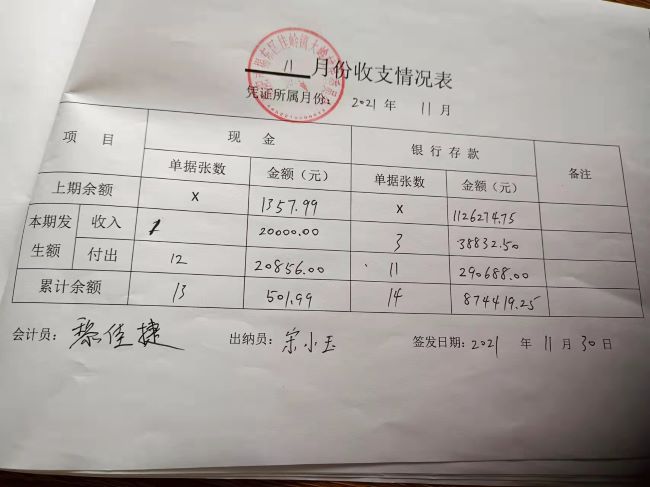 11 月份收支情况表
凭证所属月份: 2021 年 11 月
项 目 现 金 银行存款 备注
单据张数 金额（元） 单据张数 金额（元）
上期余额 X 1357.99 X 1126274.75
本期发生额 收入 1 20000.00 3 38832.50
付出 12 20856.00 11 290688.00
累计余额 13 501.99 14 874419.25
会计员: 黎佳捷 出纳员: 宋小玉 签发日期: 2021 年 11 月 30 日